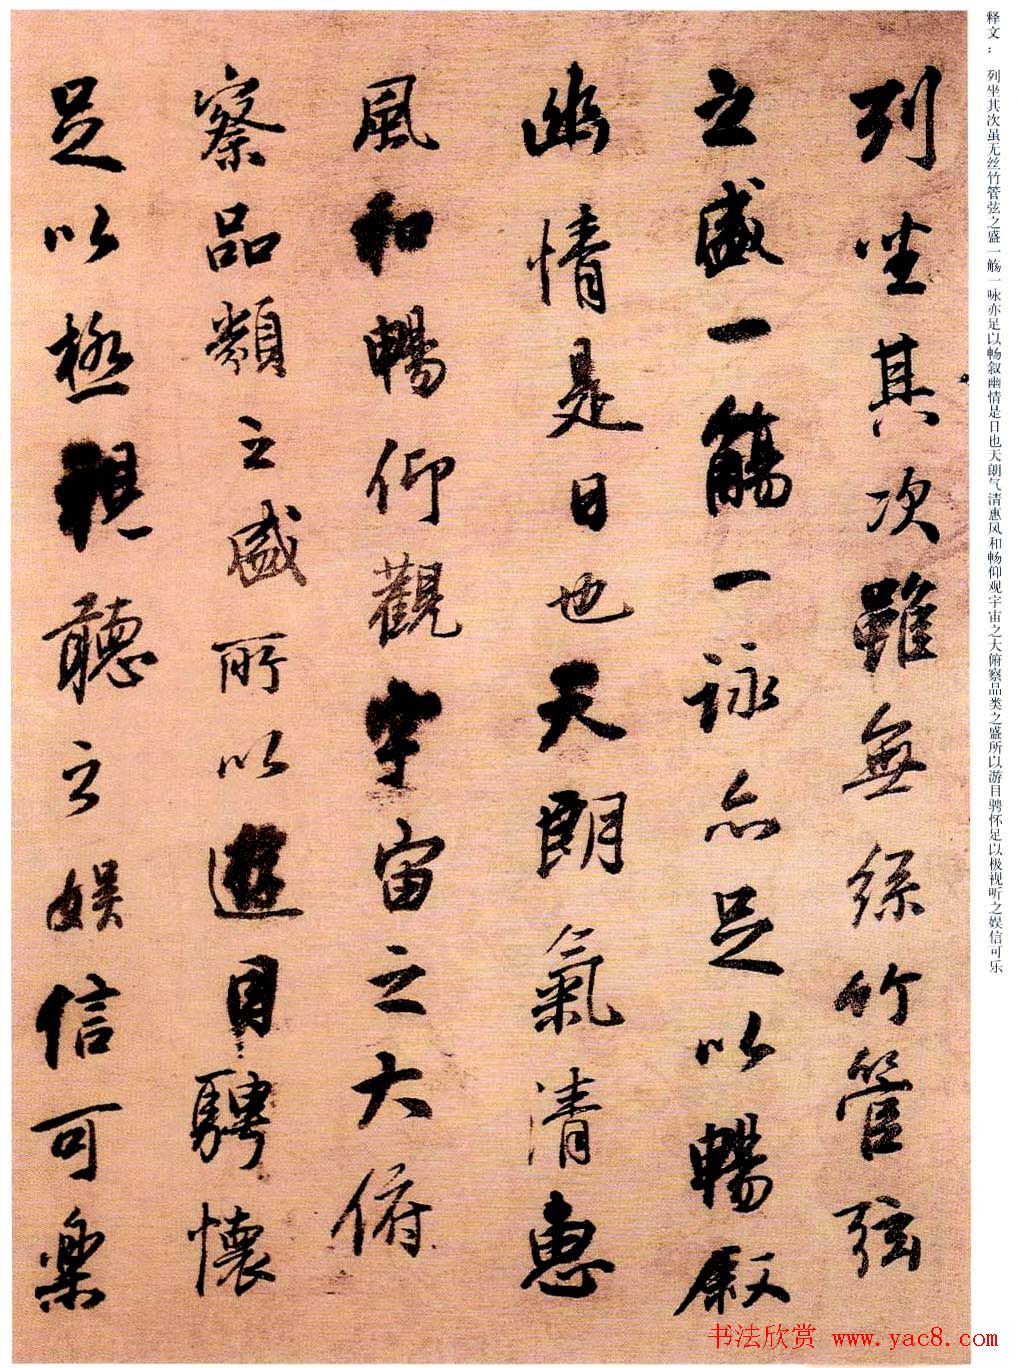 释文： 列坐其次虽无丝竹管弦之盛一觞一咏亦足以畅叙幽情是日也天朗气清惠风和畅仰观宇宙之大俯察品类之盛所以游目骋怀足以极视听之娱信可乐
列坐其次雖無絲竹管弦
之盛一觴一詠亦足以暢叙
幽情是日也天朗氣清惠
風和暢仰觀宇宙之大俯
察品類之盛所以遊目騁懷
足以極視聽之娱信可樂
书法欣赏 www.yac8.com